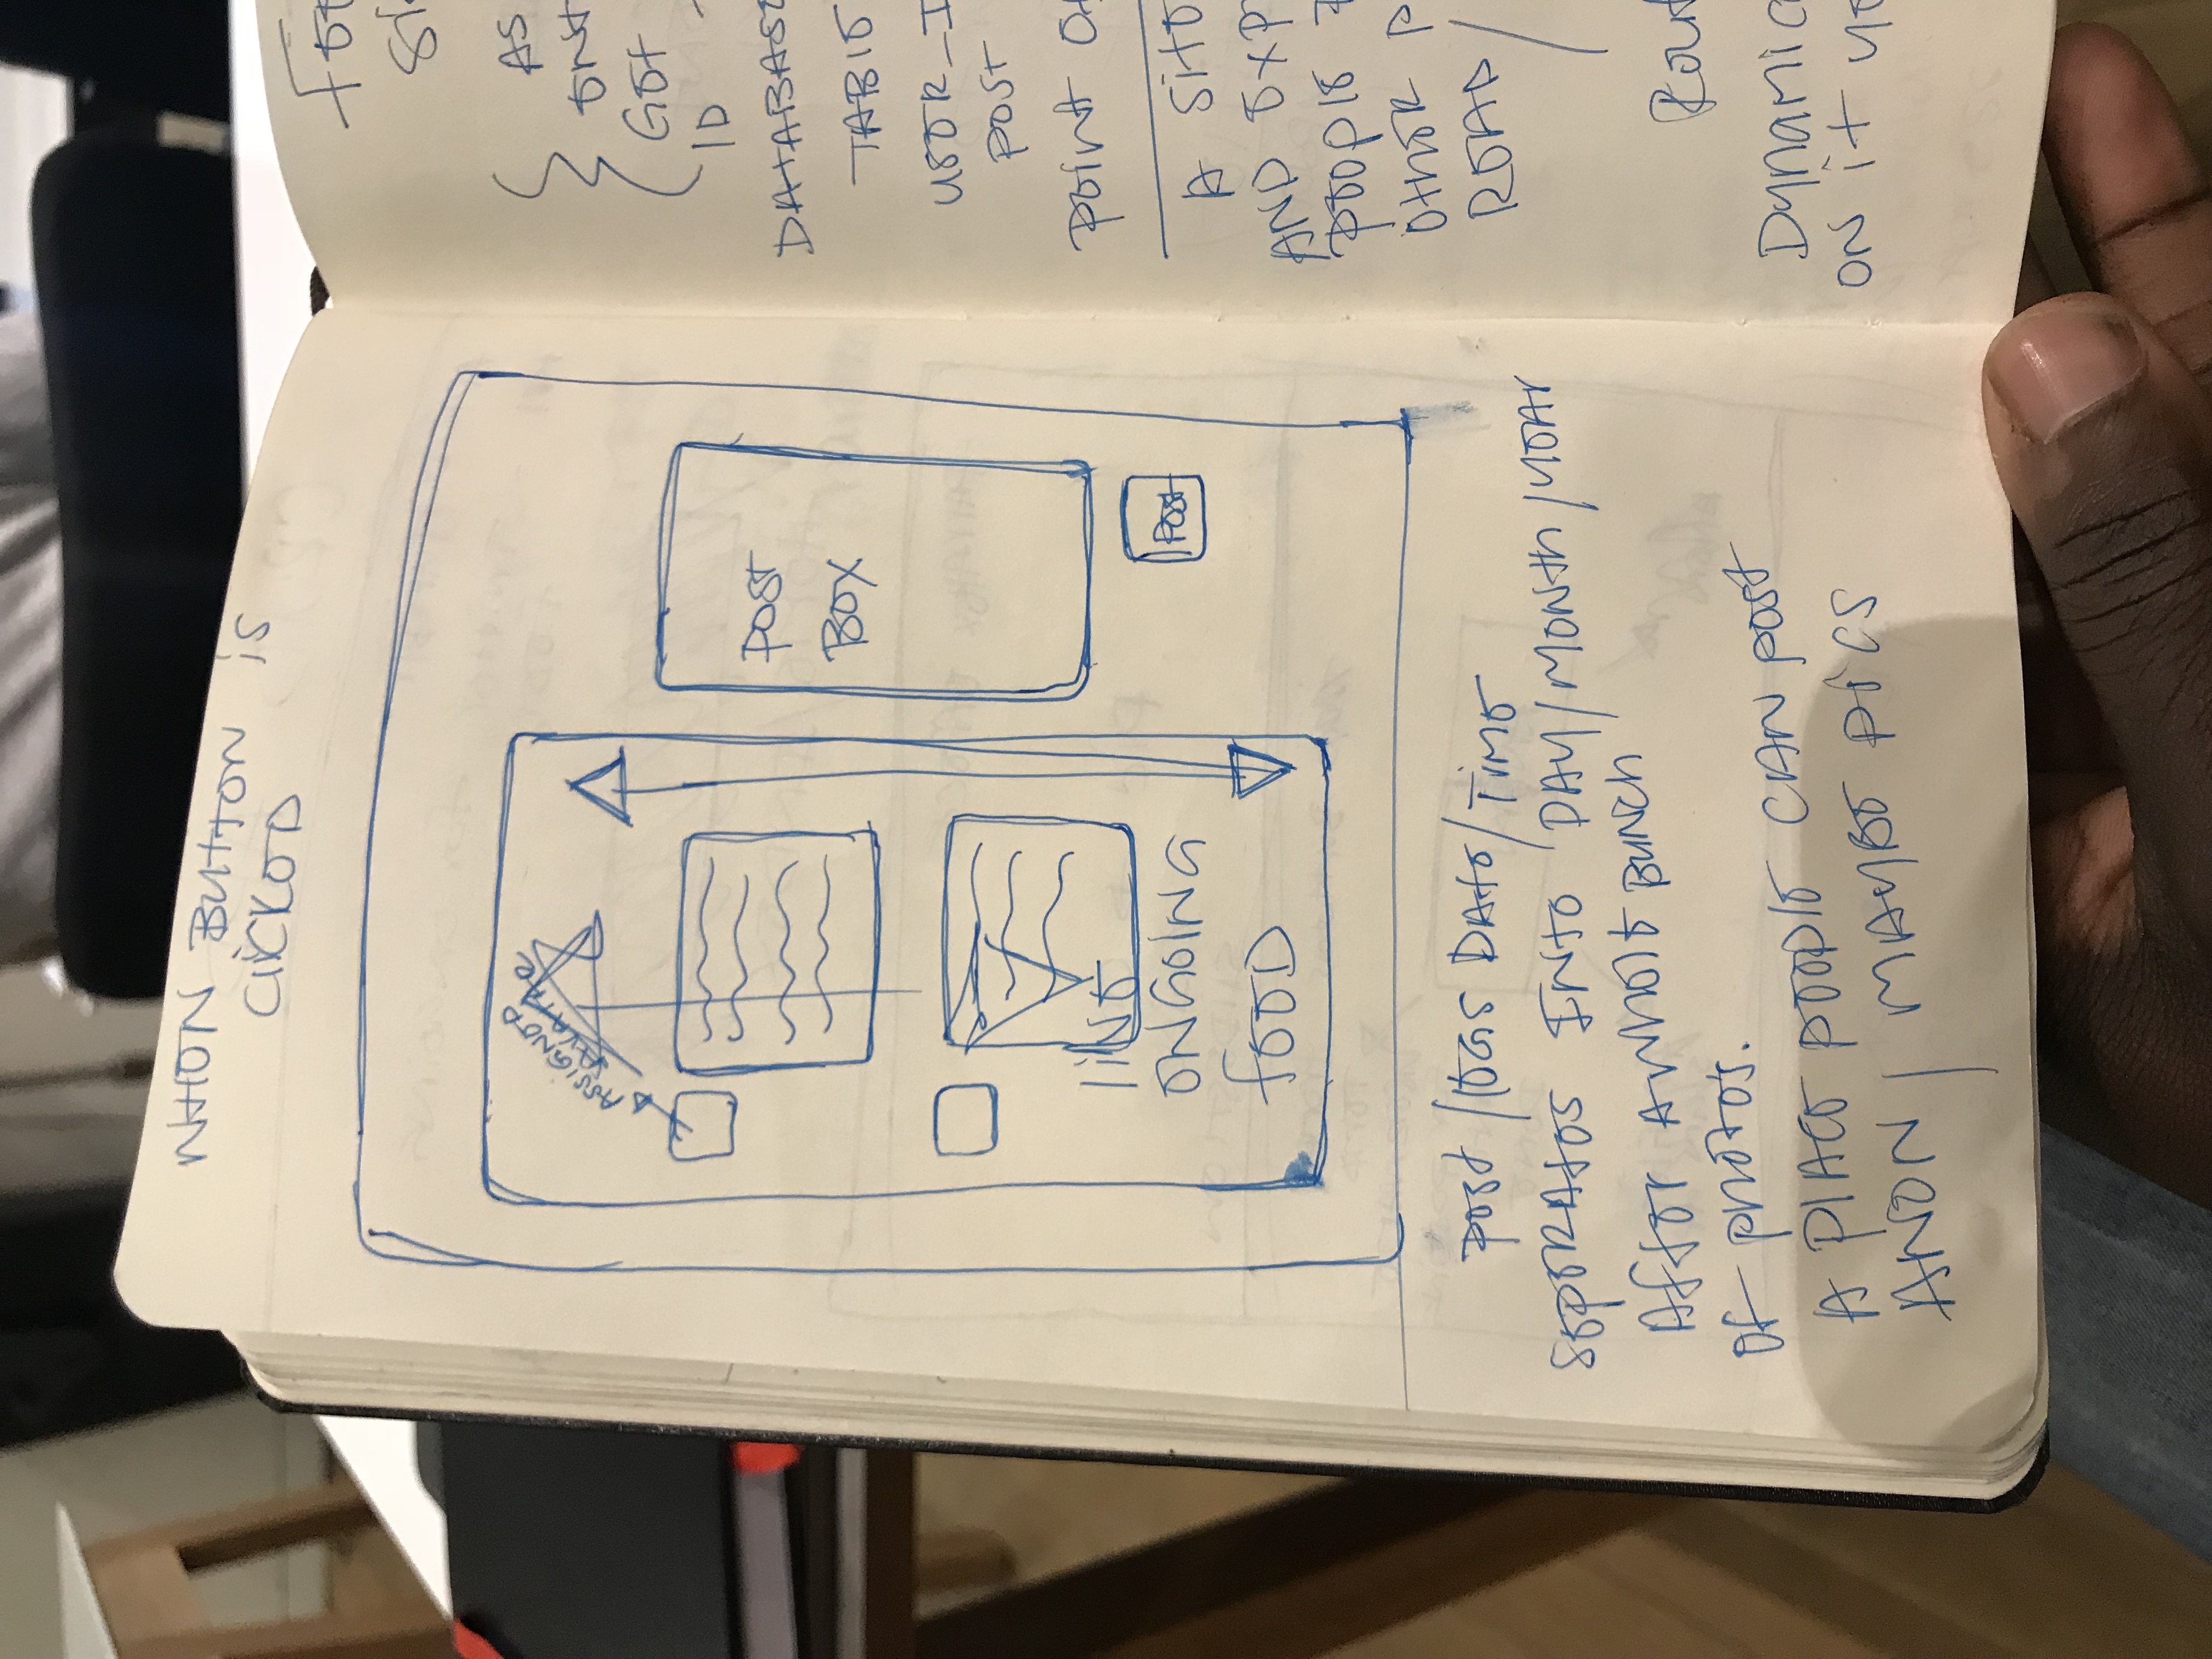 WHEN BUTTON iS
CLiCKED
ASSiGNED
AVATAR
POST
BOX
POST
LiNE
ONGOING
fEED
POST /LOGS DATE/TiME
SEPERATES INTO DAY/MONTh/YEAr
AfTEr A WHOLE BUNCh
Of PhOTOS.
A PLACE PEOPLE CAN POST
ANON / MAYBE PiCS
AS
GET
ID
DATABASE
TABLE
USER_I
POST
POiNT
A SiTE
AND EXP
PEOPLE
OThER P
READ /
Rout
Dynamic
ON iT